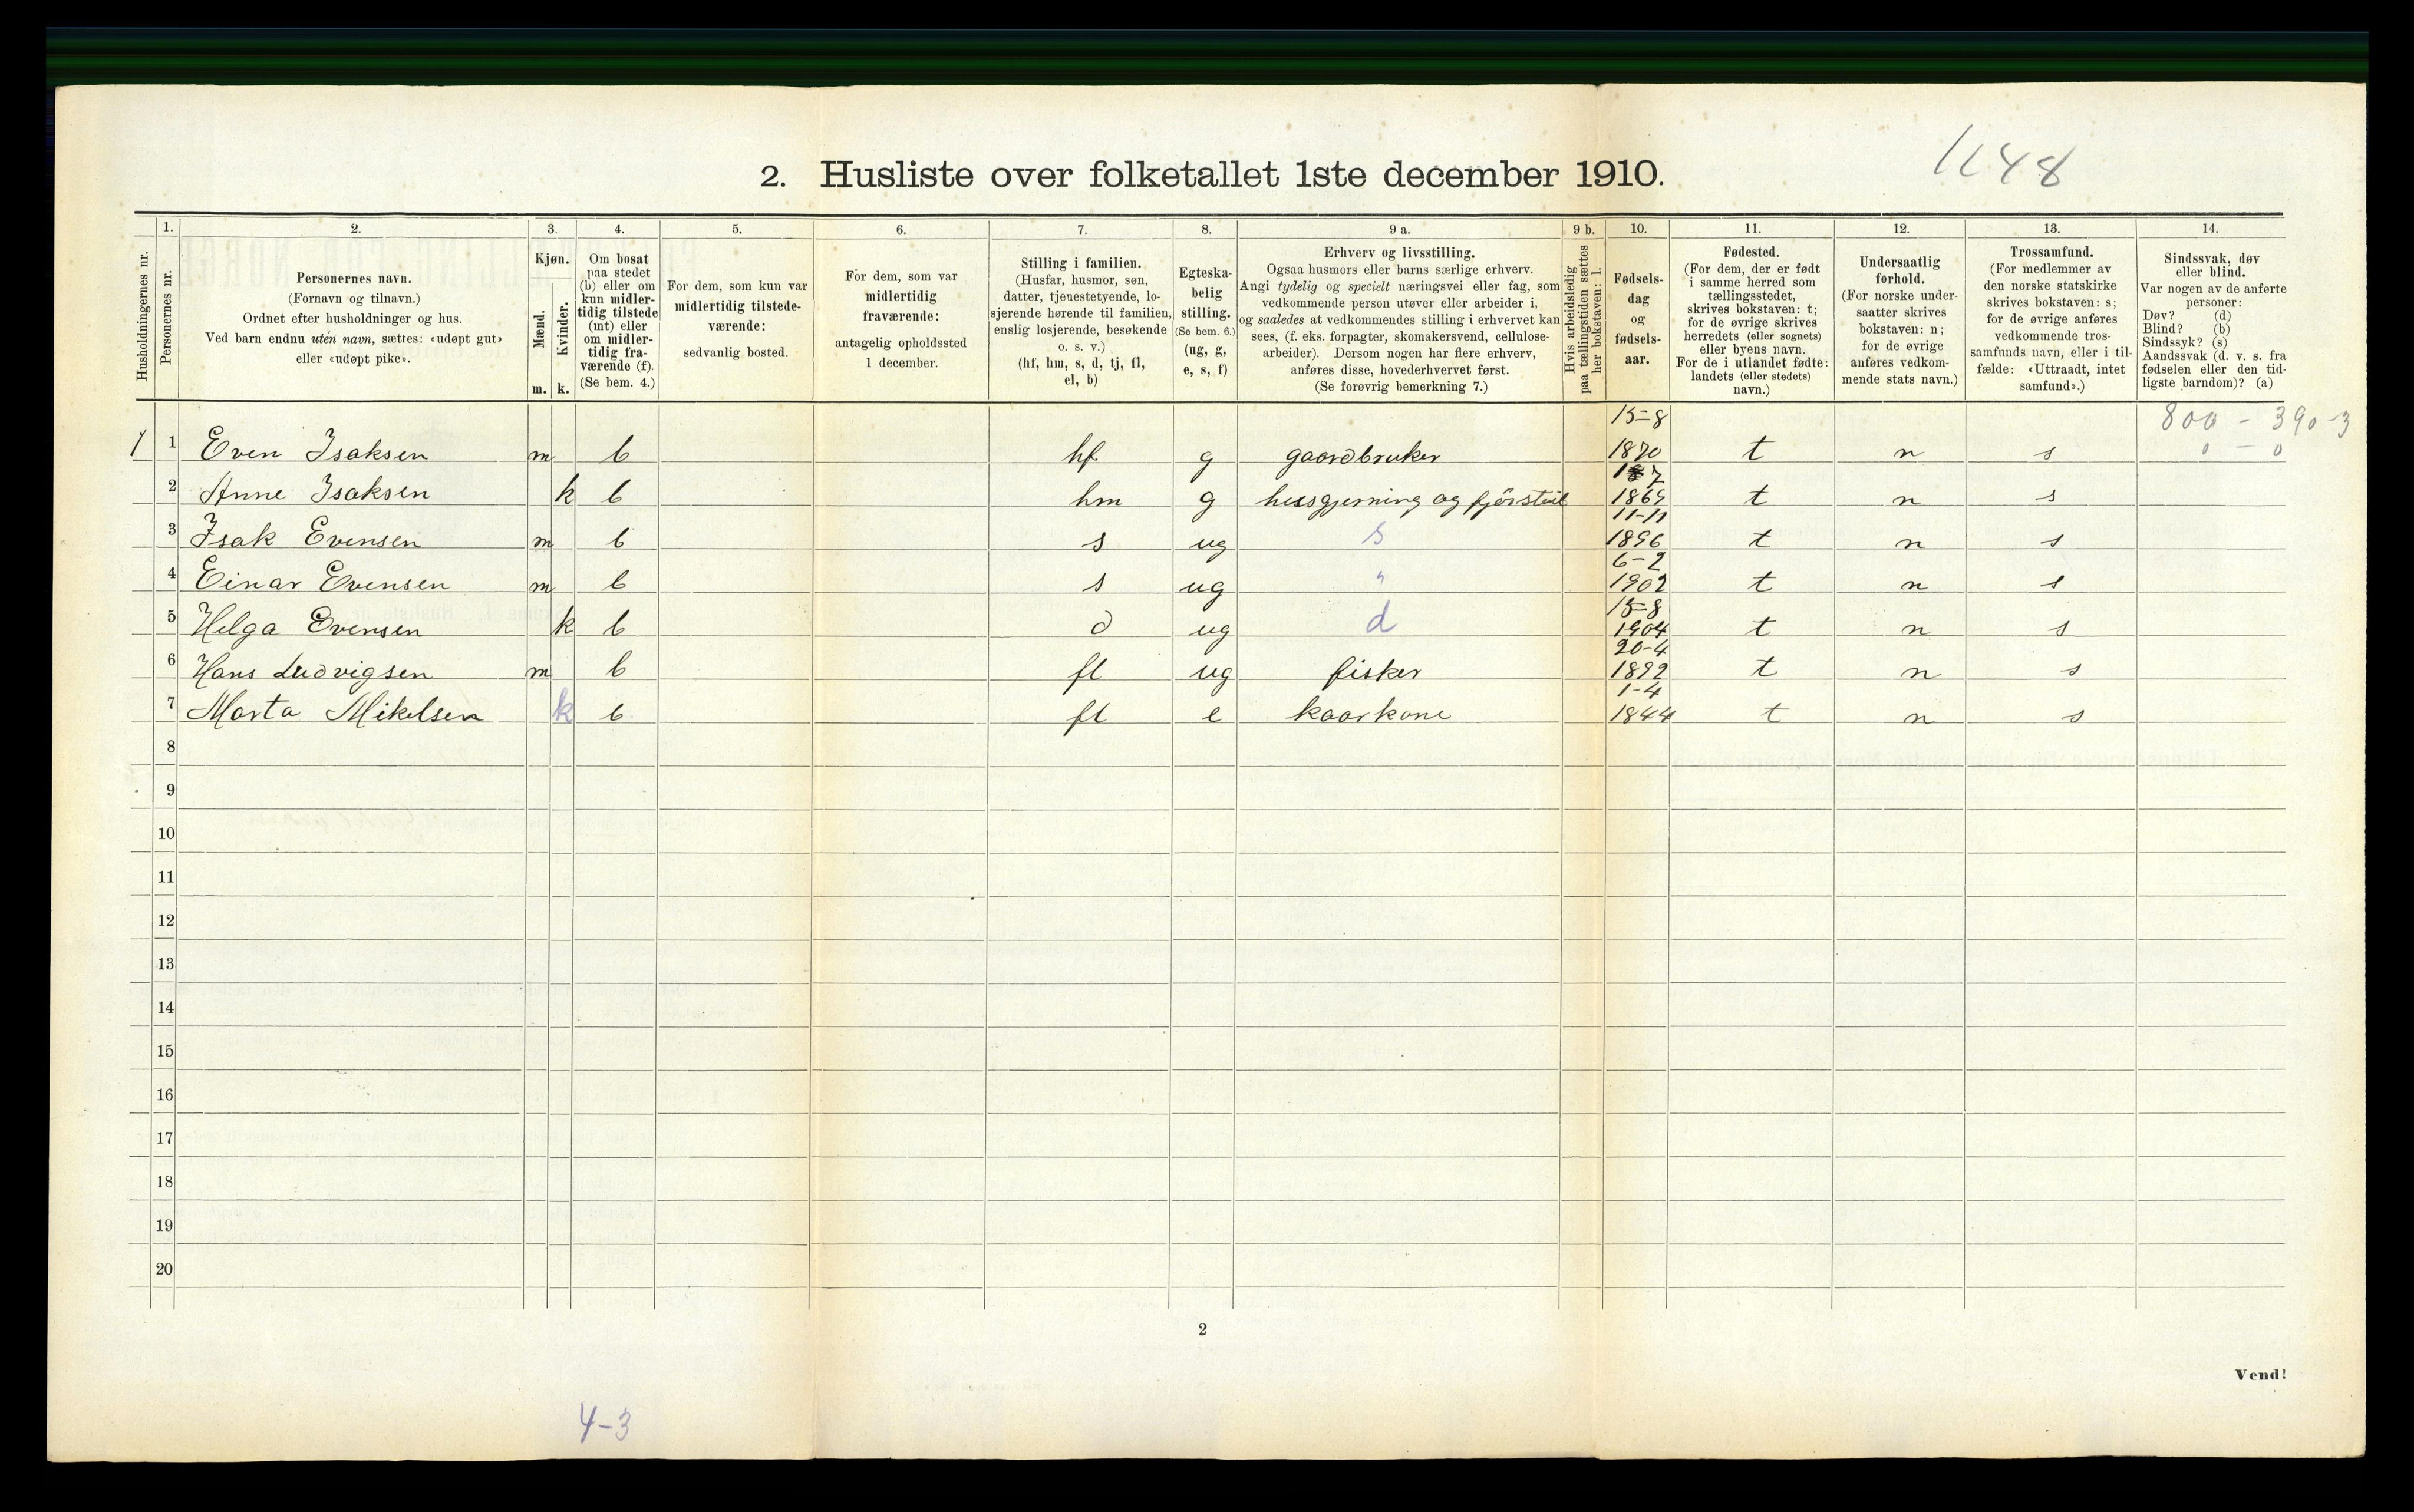 1148
2. Husliste over folketallet 1ste december 1910.
Husholdningernes nr.
1.
Personernes nr.
2.
Personernes navn.
(Fornavn og tilnavn.)
Ordnet efter husholdninger og hus.
Ved barn endnu uten navn, sættes: «udøpt gut»
eller «udøpt pike».
3.
Kjøn.
Mænd.
m.
Kvinder.
k.
4.
Om bosat
paa stedet
(b) eller om
kun midler-
tidig tilstede
(mt) eller
om midler-
tidig fra-
værende (f).
(Se bem. 4.)
5.
For dem, som kun var
midlertidig tilstede-
værende:
sedvanlig bosted.
6.
For dem, som var
midlertidig
fraværende:
antagelig opholdssted
1 december.
7.
Stilling i familien.
(Husfar, husmor, søn,
datter, tjenestetyende, lo-
sjerende hørende til familien,
enslig losjerende, besøkende
o. s. v.)
(hf, hm, s, d, tj, fl,
el, b)
8.
Egteska-
belig
stilling.
(Se bem. 6.)
(ug, g,
e, s, f)
9 a.
Erhverv og livsstilling.
Ogsaa husmors eller barns særlige erhverv.
Angi tydelig og specielt næringsvei eller fag, som
vedkommende person utøver eller arbeider i,
og saaledes at vedkommendes stilling i erhvervet kan
sees, (f. eks. forpagter, skomakersvend, cellulose-
arbeider). Dersom nogen har flere erhverv,
anføres disse, hovederhvervet først.
(Se forøvrig bemerkning 7.)
9 b.
Hvis arbeidsledig
paa tællingstiden sættes
her bokstaven: l.
10.
Fødsels-
dag
og
fødsels-
aar.
11.
Fødested.
(For dem, der er født
i samme herred som
tællingsstedet,
skrives bokstaven: t;
for de øvrige skrives
herredets (eller sognets)
eller byens navn.
For de i utlandet fødte:
landets (eller stedets)
navn.)
12.
Undersaatlig
forhold.
(For norske under-
saatter skrives
bokstaven: n;
for de øvrige
anføres vedkom-
mende stats navn.)
13.
Trossamfund.
(For medlemmer av
den norske statskirke
skrives bokstaven: s;
for de øvrige anføres
vedkommende tros-
samfunds navn, eller i til-
fælde: «Uttraadt, intet
samfund».)
14.
Sindssvak, døv
eller blind.
Var nogen av de anførte
personer:
Døv? (d)
Blind? (b)
Sindssyk? (s)
Aandssvak (d. v. s. fra
fødselen eller den tid-
ligste barndom)? (a)
15-8 800 - 390-3
1 1 Even Isaksen m b hf g gaardbruker 1870 t n s 0 - 0
2 Anne Isaksen k b hm g husgjerning og fjörstell 1865 t n s
11-11
3 Isak Evensen m b s ug s 1896 t n s
6-2
4 Einar Evensen m b s ug " 1902 t n s
15-8
5 Helga Evensen k b d ug d 1904 t n s
20-4
6 Hans Ludvigsen m b fl ug fisker 1892 t n s
1-4
7 Marta Mikelsen k b fl e kaarkone 1844 t n s
8
9
10
11
12
13
14
15
16
17
18
19
20
2
Vend!
4-3